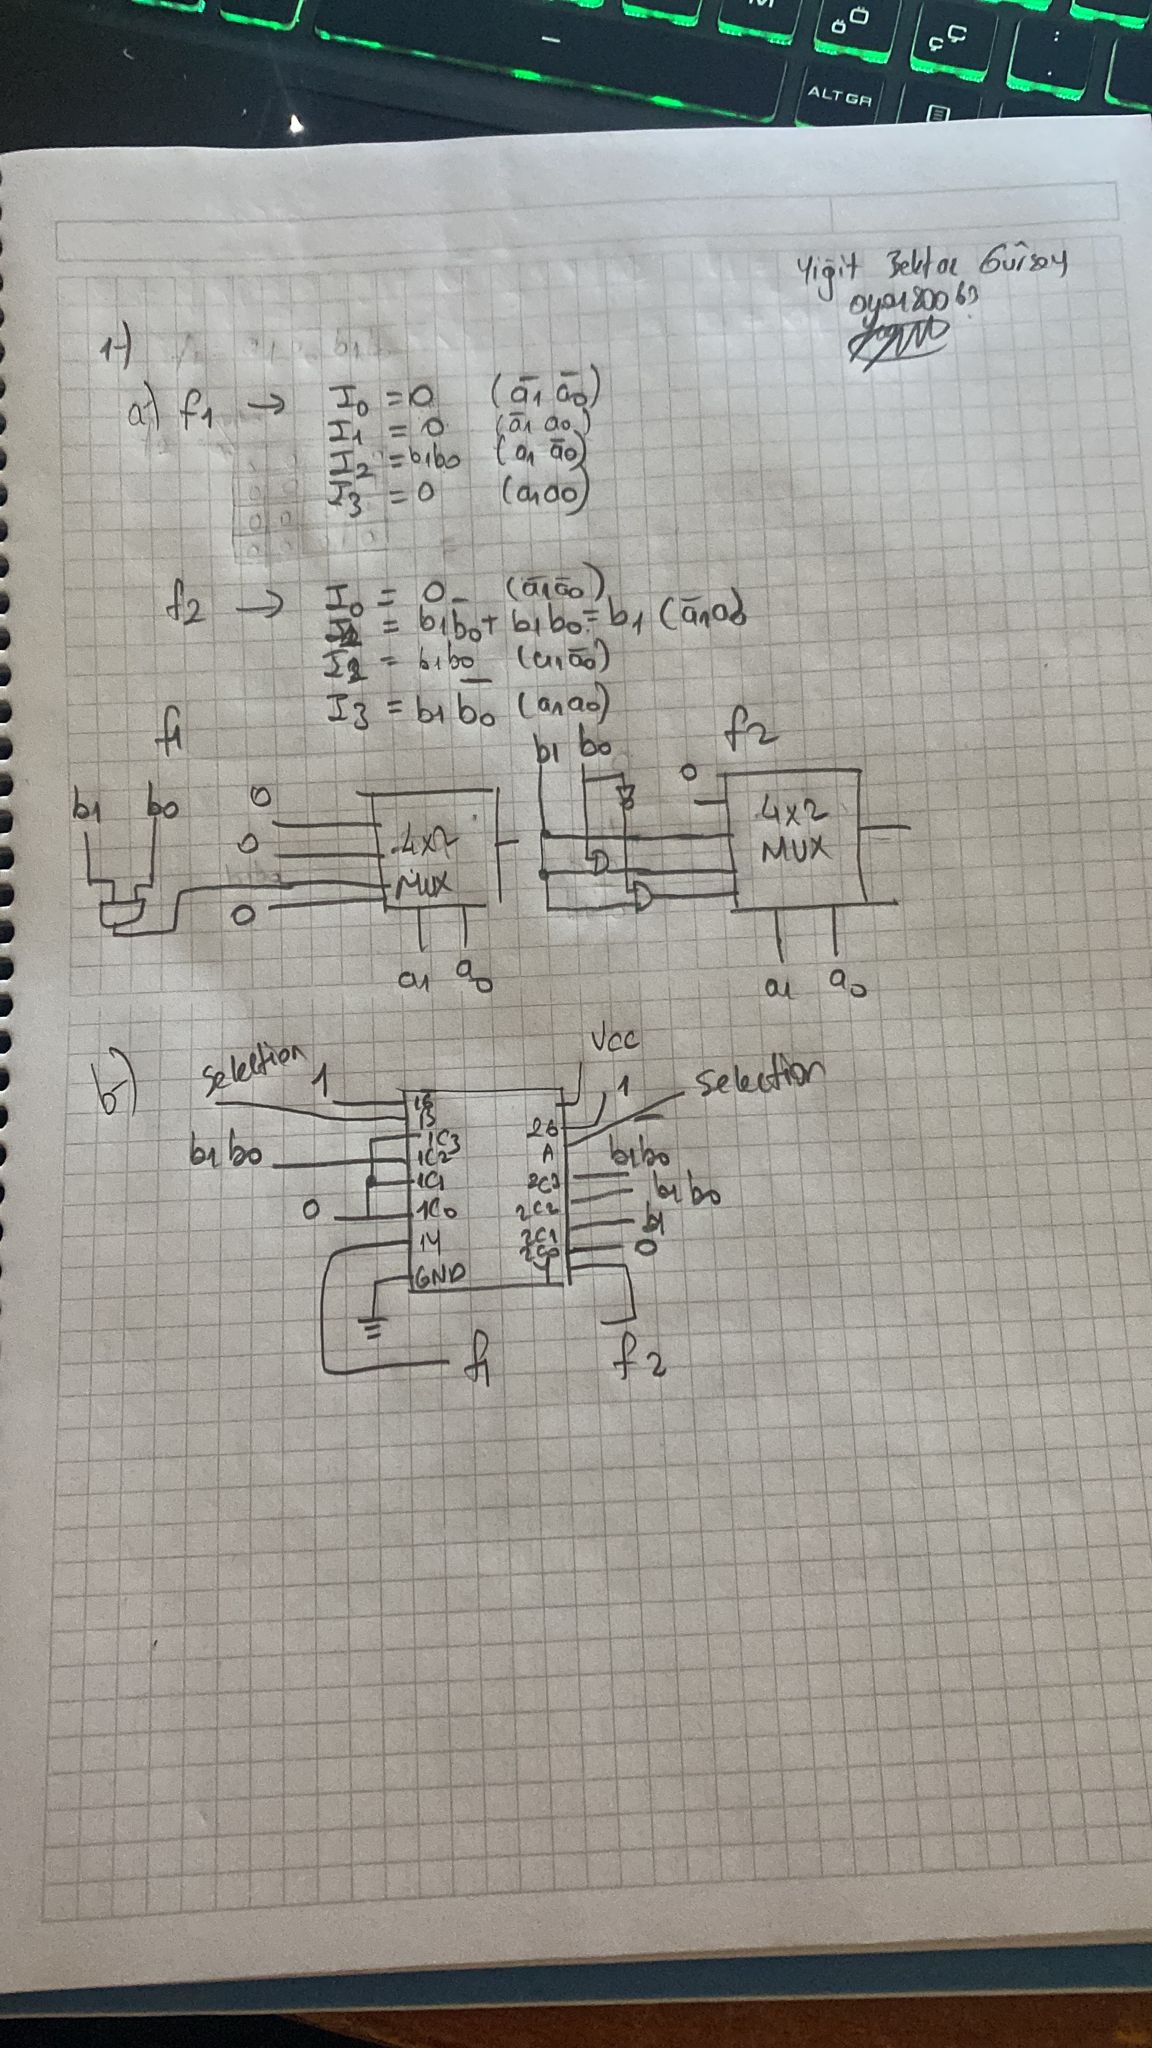 ALT GR
M
Ö
Ç
:
.
Yiğit Bektaş Gürsoy
1-)
a-) f1 → I0 = 0 (a̅1 a̅0)
I1 = 0 (a̅1 a0)
I2 = b1b0 (a1 a̅0)
I3 = 0 (a1a0)
f2 → I0 = 0 (a̅1a̅0)
I1 = b1b̅0 + b1b0 = b1 (a̅1a0)
I2 = b1b0 (a1a̅0)
I3 = b1b̅0 (a1a0)
f1
b1 b0
0
0
0
4x2
MUX
a1 a0
f2
b1 b0
0
4x2
MUX
a1 a0
b-)
Selection
1
b1b0
0
B
1C3
1C2
1C1
1C0
1Y
GND
f1
VCC
1
Selection
A
2C3
2C2
2C1
2C0
Y
b1b̅0
b1b0
b1
0
f2